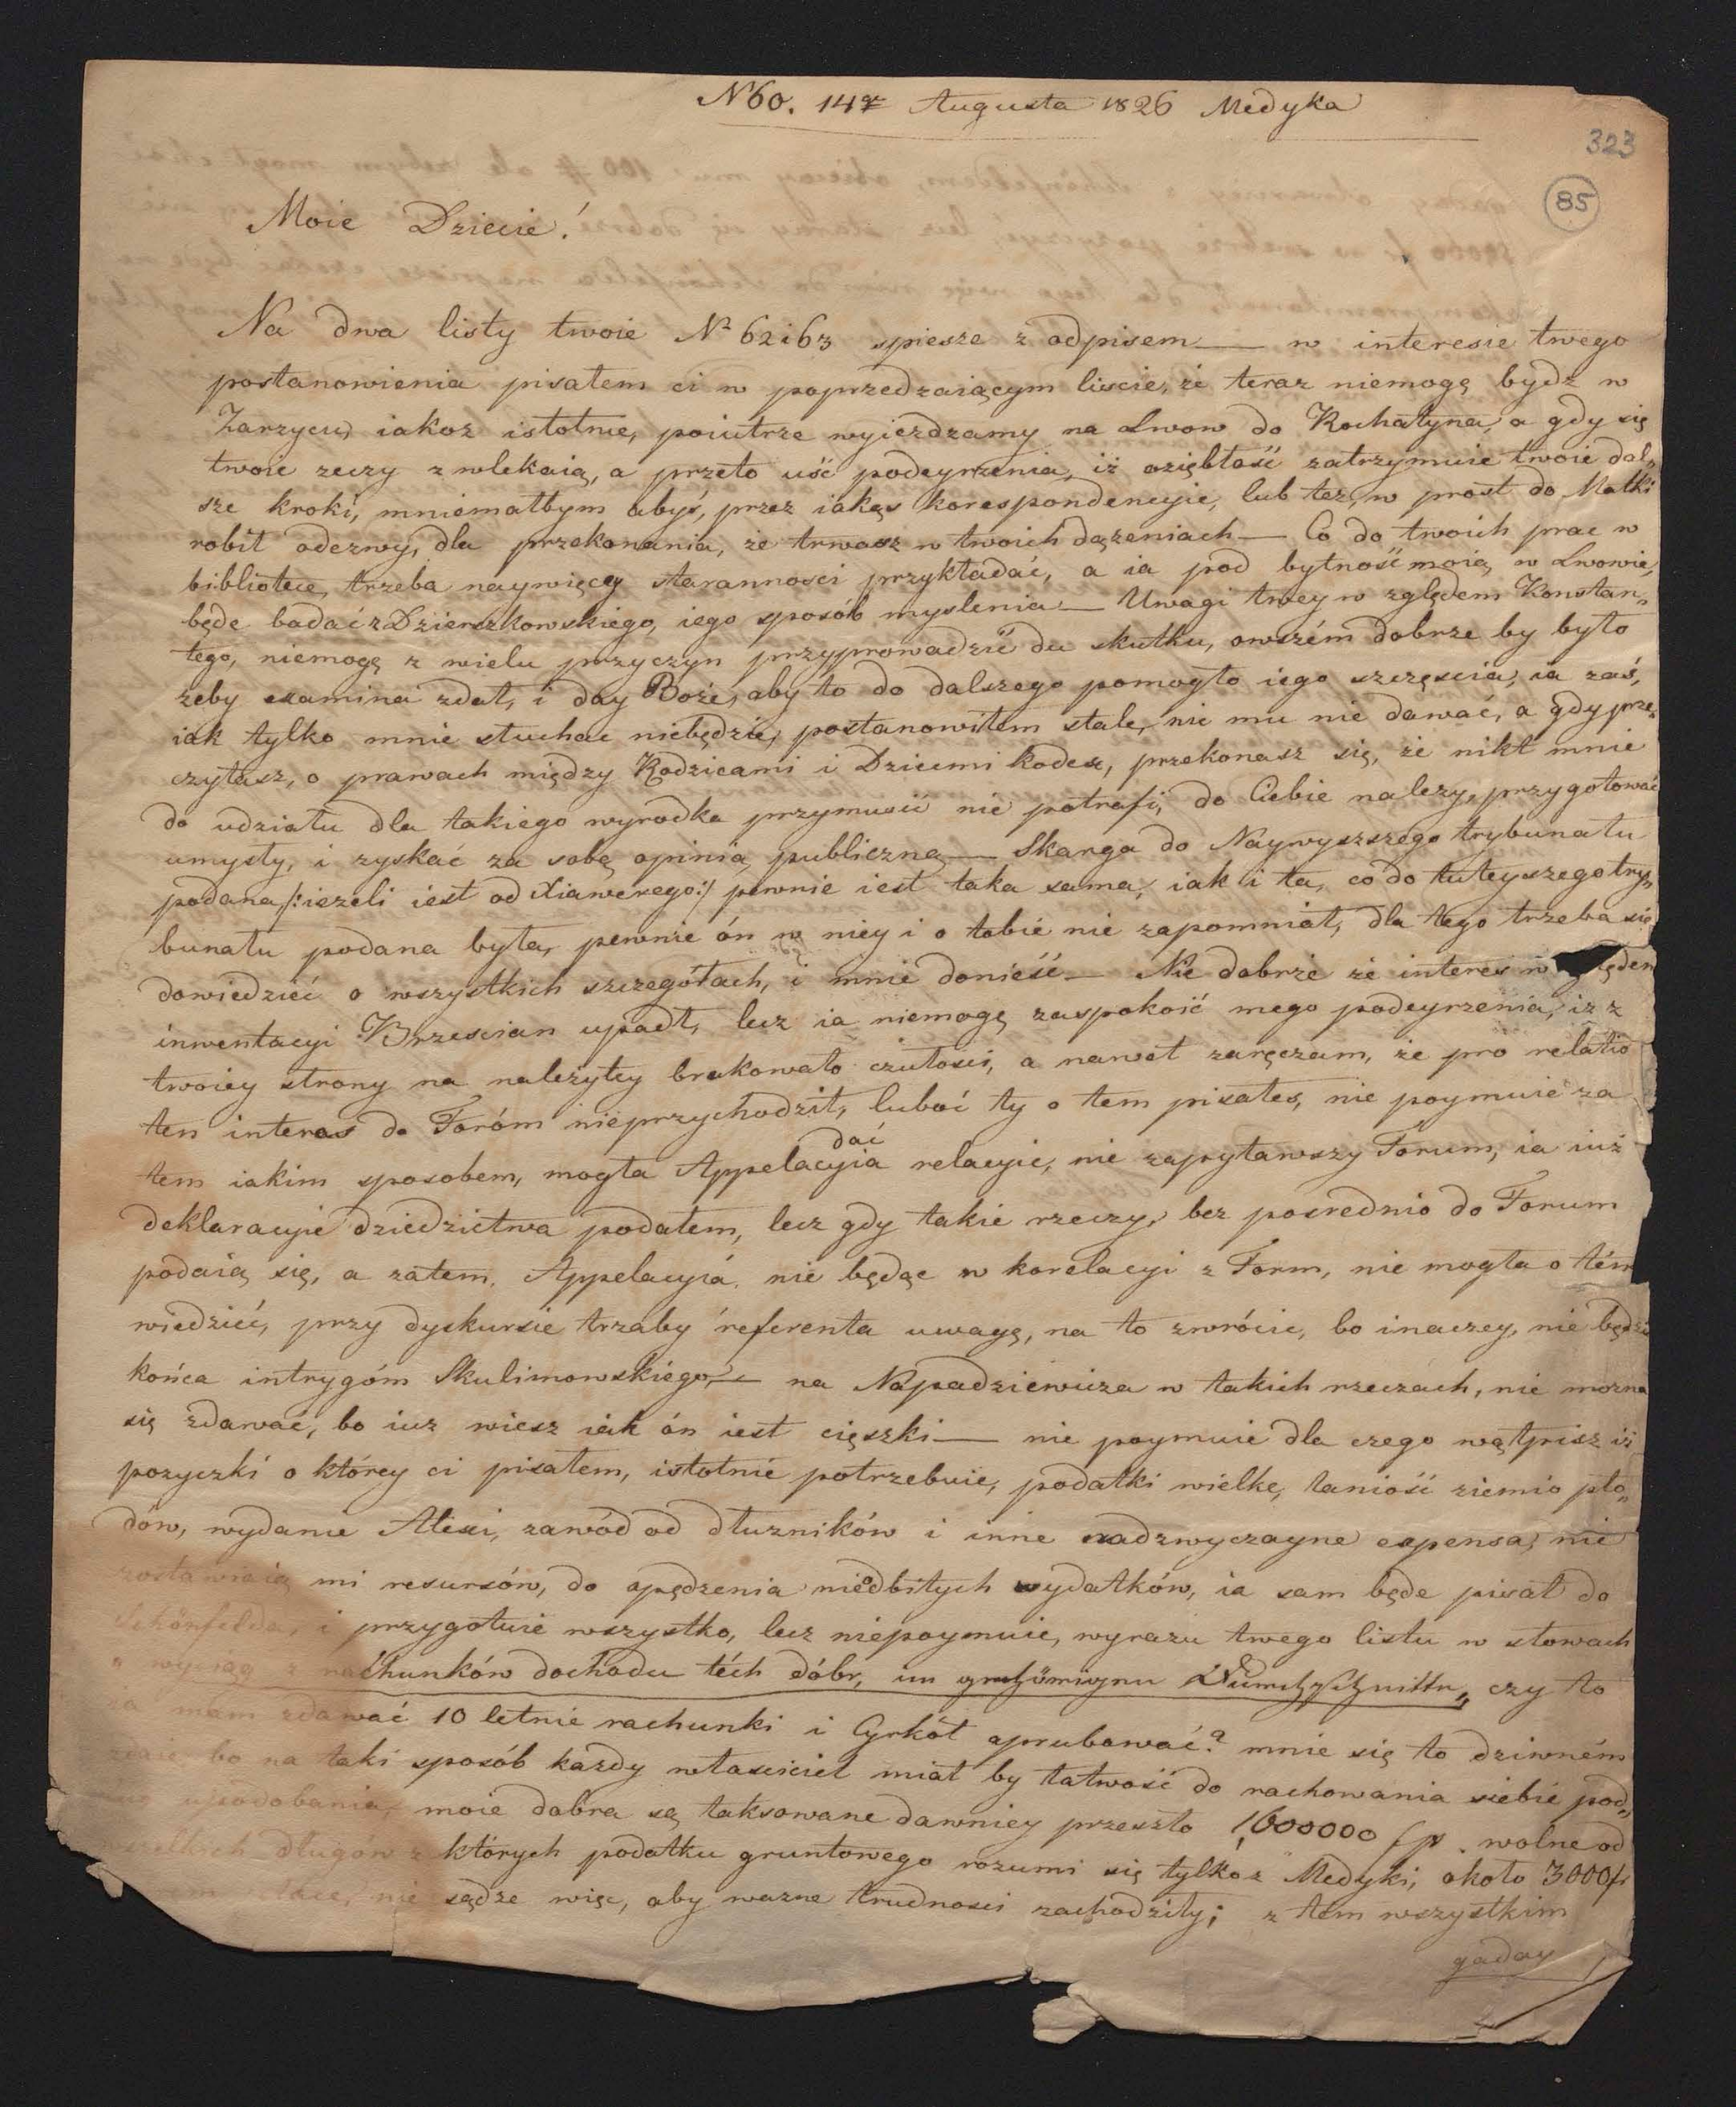 N 60. 14 Augusta 1826 Medyka
323
85
Moie Dziecie!
Na dwa listy twoie Nº 62 i 63 spiesze z odpisem — w interesie twego
postanowienia pisałem ci w poprzedzaiącym liscie, że teraz niemogę bydz w
Zarzycu, iakoz istotnie, poiutrze wyiezdzamy na Lwow do Rochatyna, a gdy się
twoie rzeczy zwlekaią, a przeto uść podeyrzenia, iż oziębłość zatrzymuie twoie dal„
sze kroki, mniemałbym abyś, przez iakąs korespondencyie, lub tez, w prost do Matki
robił odezwy, dla przekonania, że trwasz w twoich dązeniach — Co do twoich prac w
bibliotece, trzeba naywięcey staranności przykładać, a ia pod bytność moią w Lwowie,
będe badać z Dzierszkowskiego, iego sposób myslenia — Uwagi twey w zględem Konstan„
tego, niemogę z wielu przyczyn przyprowadzić do skutku, owszém dobrze by było
zeby examina zdał, i day Boże, aby to do dalszego pomogło iego szczęscia, ia zaś,
iak tylko mnie słuchac niebędzie, postanowiłem stale, nic mu nie dawać, a gdy prze„
czytasz, o prawach między Rodzicami i Dziecmi kodex, przekonasz się, że nikt mnie
do udziału dla takiego wyrodka przymusić nie potrafi, do Ciebie nalezy, przygotować
umysły, i zyskać za sobą opinią publiczną — Skarga do Naywyszszego trybunału
podana /: iezeli iest od Xiawerego :/ pewnie iest taka sama, iak i ta, co do tuteyszego try„
bunału podana była, pewnie ón w niey i o tobie nie zapomniał, dla tego trzeba się
dowiedzieć o wszystkich szczegółach, i mnie donieść — Nie dobrze że interes w zględem
inwentacyi Brzescian upadł, lecz ia niemogę zaspokoić mego podeyrzenia, iz z
twoiey strony na należytey brakowało czułości, a nawet zaręczam, że pro relatio
ten interes do Foróm nieprzychodził, luboć ty o tem pisałes, nie poymuie za
tem iakim sposobem, mogła Appelacyia dać relacyie, nie zapytawszy Forum, ia iuż
deklaracyie dziedzictwa podałem, lecz gdy takie rzeczy, bez posrednio do Forum
podaią się, a zatem, Appelacyia, nie będąc w korelacyi z Form, nie mogła o tém
wiedzieć, przy dyskursie trzaby referenta uwagę, na to zwrócic, bo inaczey, nie będzie
końca intrygóm Skulimowskiego, — na Napadziewicza w takich rzeczach, nie mozna
się zdawać, bo iuz wiesz iak ón iest cięszki — nie poymuie dla czego wątpisz iż
pozyczki o którey ci pisałem, istotnie potrzebuie, podatki wielke, taniość ziemio pło„
dów, wydanie Alexi, zawód od dłuzników i inne nadzwyczayne expensa, nie
zostawiaią mi resursów, do opędzenia nieodbitych wydatków, ia sam będe pisał do
Schönfelda, i przygotuie wszystko, lecz niepoymuie, wyrazu twego listu w słowach
„ wyciąg z rachunków dochodu téch dóbr, im zehnjährigen Durchschnitte„ czy to
ia mam zdawać 10 letnie rachunki i Cyrkół aprubować? mnie się to dziwném
zdaie, bo na taki sposób kazdy własciciel miał by łatwość do rachowania siebie pod„
ług upodobania, moie dobra są taksowane dawniey przeszło 1,600000 fp. wolne od
wszelkich długów z których podatku gruntowego rozumi się tylko z Medyki, około 3000 fr
nie sądze więc, aby wazne trudnosci zachodziły; z tem wszystkim
gaday